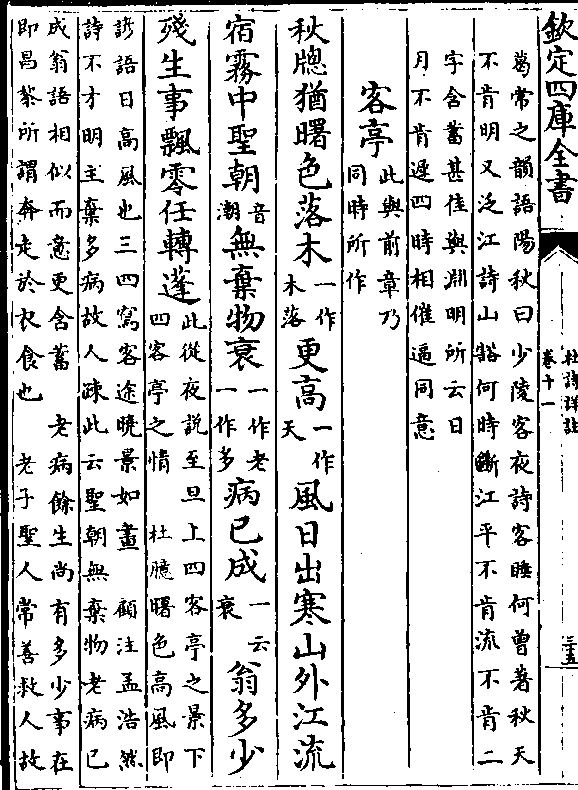 欽定四庫全書
杜詩詳註
卷十一
三十五
葛常之韻語陽秋曰少陵客夜詩客睡何曾著秋天
不肯明又泛江詩山豁何時斷江平不肯流不肯二
字含蓄甚佳與淵明所云日
月不肯遲四時相催逼同意
客亭此與前章乃
同時所作
秋牕猶曙色落木一作
木落更高一作
天風日出寒山外江流
宿霧中聖朝音
潮無棄物衰一作老
一作多病已成一云
衰翁多少
殘生事飄零任轉蓬此從夜說至旦上四客亭之景下
四客亭之情 杜臆曙色高風即
諺語日高風也三四寫客途曉景如畫 顧注孟浩然
詩不才明主棄多病故人疎此云聖朝無棄物老病已
成翁語相似而意更含蓄 老病餘生尚有多少事在
即昌黎所謂奔走於衣食也 老子聖人常善救人故